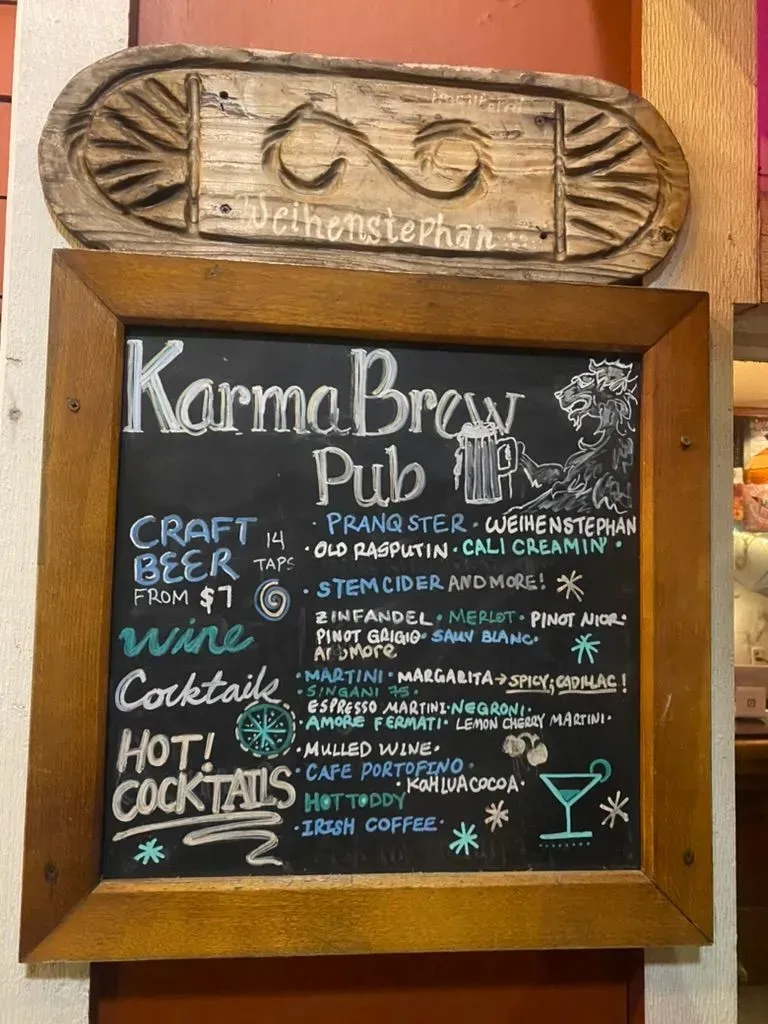 Weihenstephan
Karma Brew
Pub
CRAFT
BEER
14
TAPS
FROM $7
· PRANQSTER · WEIHENSTEPHAN
· OLD RASPUTIN · CALI CREAMIN' ·
· STEM CIDER AND MORE!
wine
ZINFANDEL · MERLOT · PINOT NIOR ·
PINOT GRIGIO · SAUV BLANC ·
AND MORE
Cocktails
· MARTINI · MARGARITA → SPICY; CADILLAC!
· SINGANI 75 ·
ESPRESSO MARTINI · NEGRONI ·
· AMORE FERMATI · LEMON CHERRY MARTINI ·
HOT!
COCKTAILS
· MULLED WINE ·
· CAFE PORTOFINO ·
· KAHLUA COCOA ·
HOT TODDY
· IRISH COFFEE ·